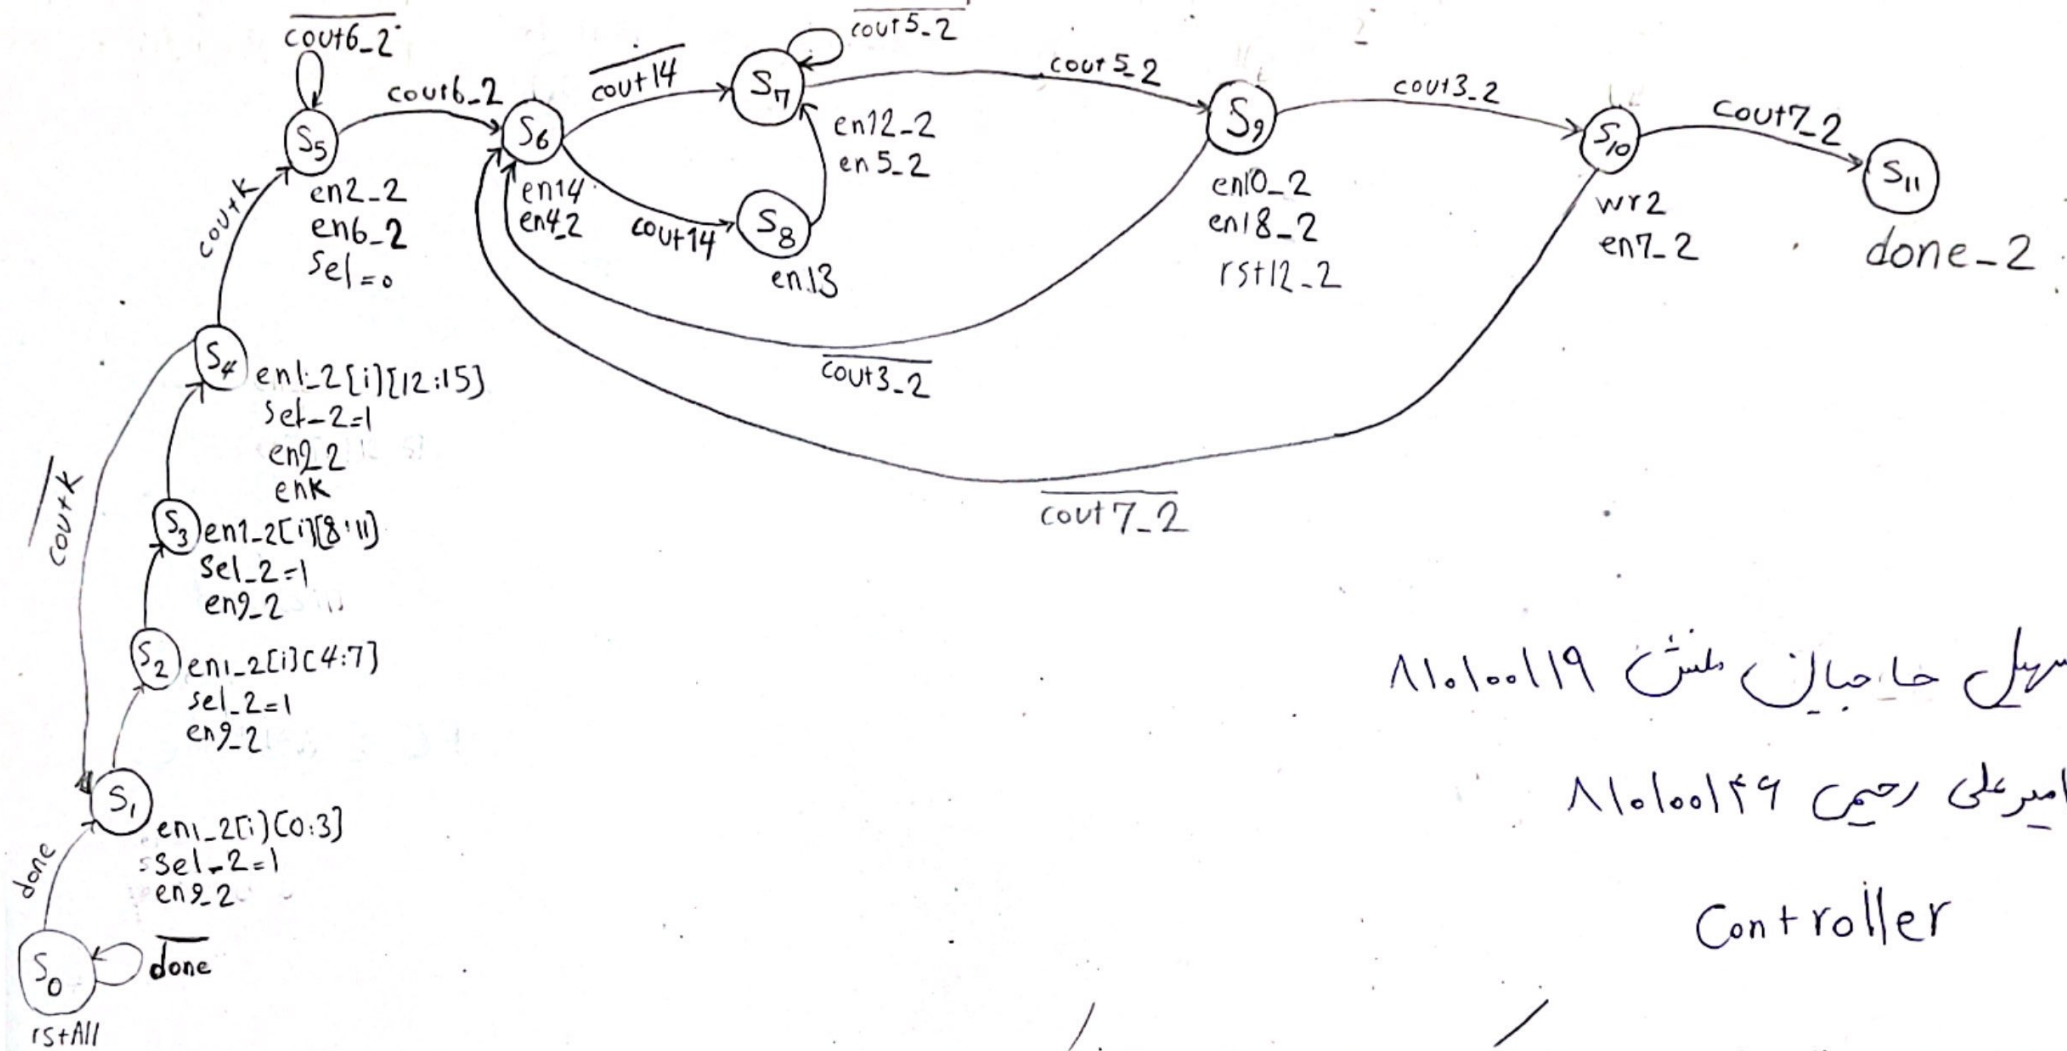 cout6_2
cout6_2
S5
en2_2
en6_2
sel=0
cout14
S6
en14
en4_2
cout14
cout5_2
S7
en12_2
en5_2
S8
en13
cout5_2
S9
en10_2
en18_2
rst12_2
cout3_2
cout3_2
S10
wr2
en7_2
cout7_2
cout7_2
S11
done_2
coutk
S4
en1_2[i][12:15]
sel_2=1
en9_2
enk
coutk
S3
en1_2[i][8:11]
sel_2=1
en9_2
S2
en1_2[i][4:7]
sel_2=1
en9_2
S1
en1_2[i][0:3]
sel_2=1
en9_2
done
S0
done
rstAll
سهیل حاجیان منش ۸۱۰۱۰۰۱۱۹
امیرعلی رحیمی ۸۱۰۱۰۰۱۴۶
Controller